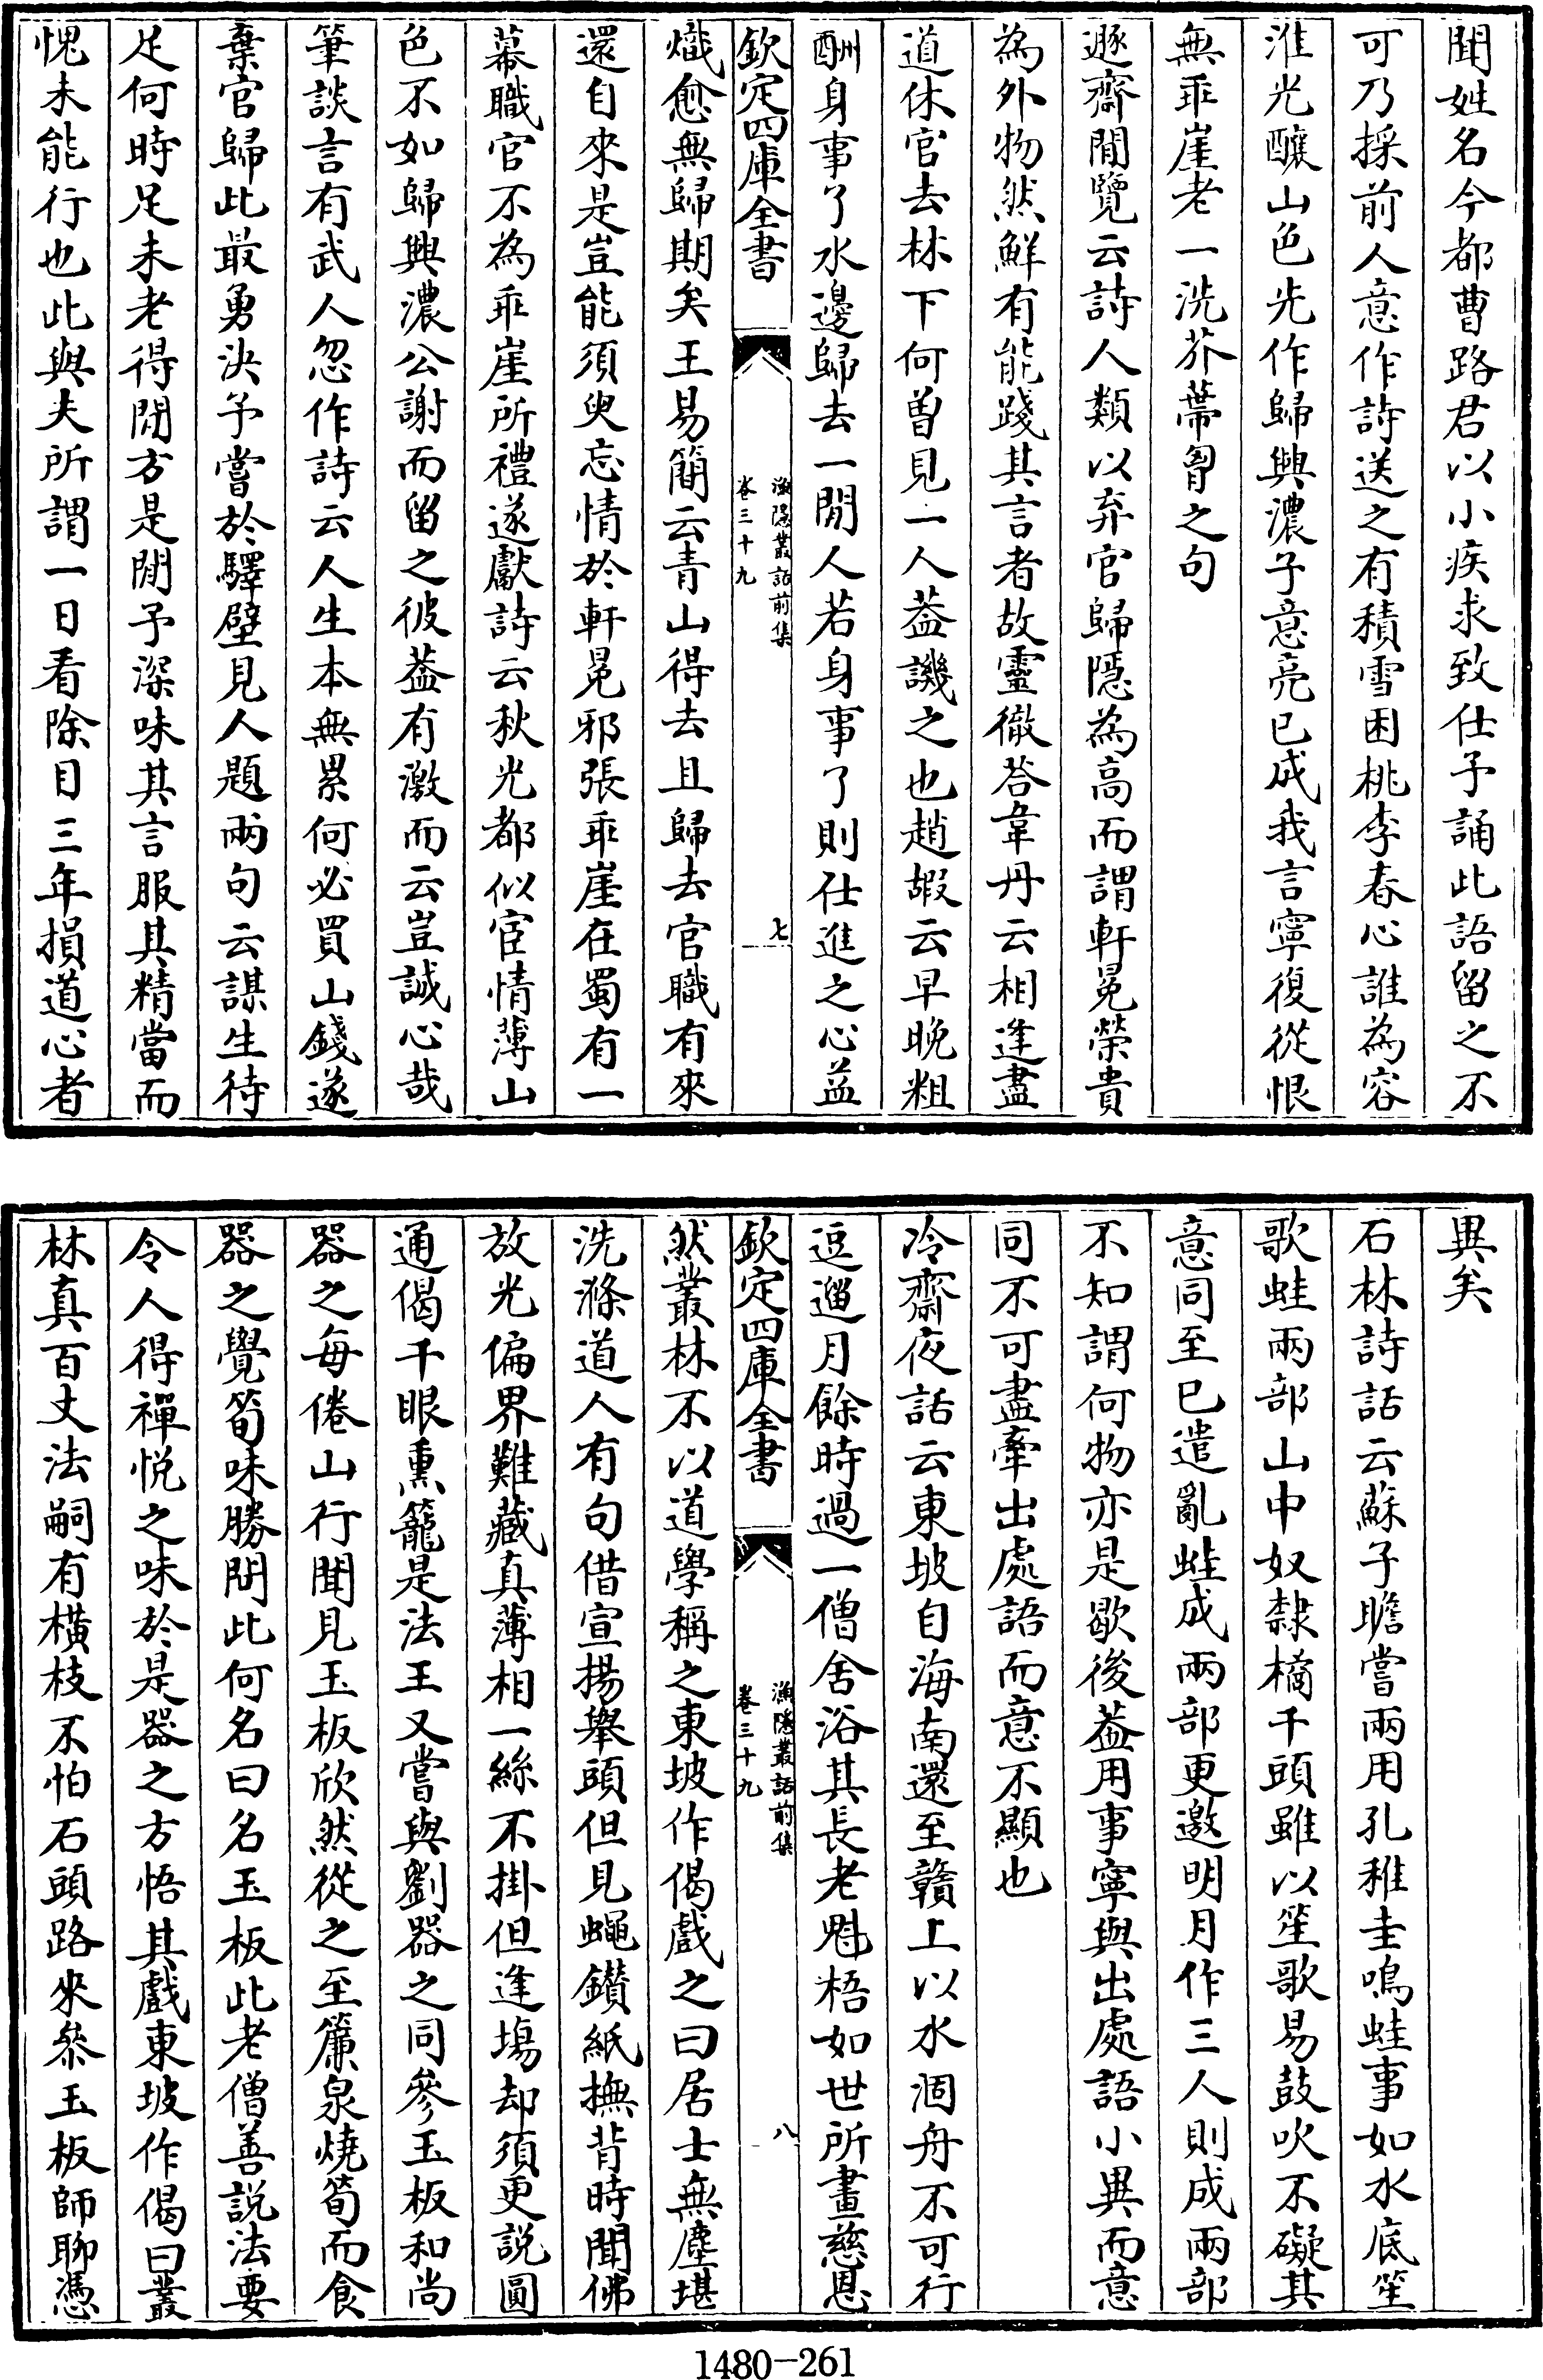 聞姓名今都曹路君以小疾求致仕予誦此語留之不
可乃採前人意作詩送之有積雪困桃李春心誰為容
淮光釀山色先作歸興濃子意亮已成我言寧復從恨
無乖崖老一洗芥蔕胷之句
遯齋閒覽云詩人類以弃官歸隱為高而謂軒冕榮貴
為外物然鮮有能踐其言者故靈徹荅韋丹云相逢盡
道休官去林下何曽見一人葢譏之也趙嘏云早晚粗
酬身事了水邊歸去一閒人若身事了則仕進之心益
欽定四庫全書
漁隱叢話前集
卷三十九
七
熾愈無歸期矣王易簡云青山得去且歸去官職有來
還自來是豈能須臾忘情於軒冕邪張乖崖在蜀有一
幕職官不為乖崖所禮遂獻詩云秋光都似宦情薄山
色不如歸興濃公謝而留之彼葢有激而云豈誠心哉
筆談言有武人忽作詩云人生本無累何必買山錢遂
棄官歸此最勇決予嘗於驛壁見人題兩句云謀生待
足何時足未老得閒方是閒予深味其言服其精當而
愧未能行也此與夫所謂一日看除目三年損道心者
異矣
石林詩話云蘇子瞻嘗兩用孔稚圭鳴蛙事如水底笙
歌蛙兩部山中奴隸橘千頭雖以笙歌易鼓吹不礙其
意同至已遣亂蛙成兩部更邀明月作三人則成兩部
不知謂何物亦是歇後葢用事寧與出處語小異而意
同不可盡牽出處語而意不顯也
冷齋夜話云東坡自海南還至贛上以水涸舟不可行
逗遛月餘時過一僧舍浴其長老魁梧如世所畫慈恩
欽定四庫全書
漁隱叢話前集
卷三十九
八
然叢林不以道學稱之東坡作偈戲之曰居士無塵堪
洗滌道人有句借宣揚舉頭但見蠅鑚紙撫背時聞佛
放光偏界難藏真薄相一絲不掛但逢塲却須更說圓
通偈千眼熏籠是法王又嘗與劉器之同參玉板和尚
器之每倦山行聞見玉板欣然從之至簾泉燒筍而食
器之覺筍味勝問此何名曰名玉板此老僧善說法要
令人得禪悅之味於是器之方悟其戲東坡作偈曰叢
林真百丈法嗣有橫枝不怕石頭路來叅玉板師聊憑
1480-261